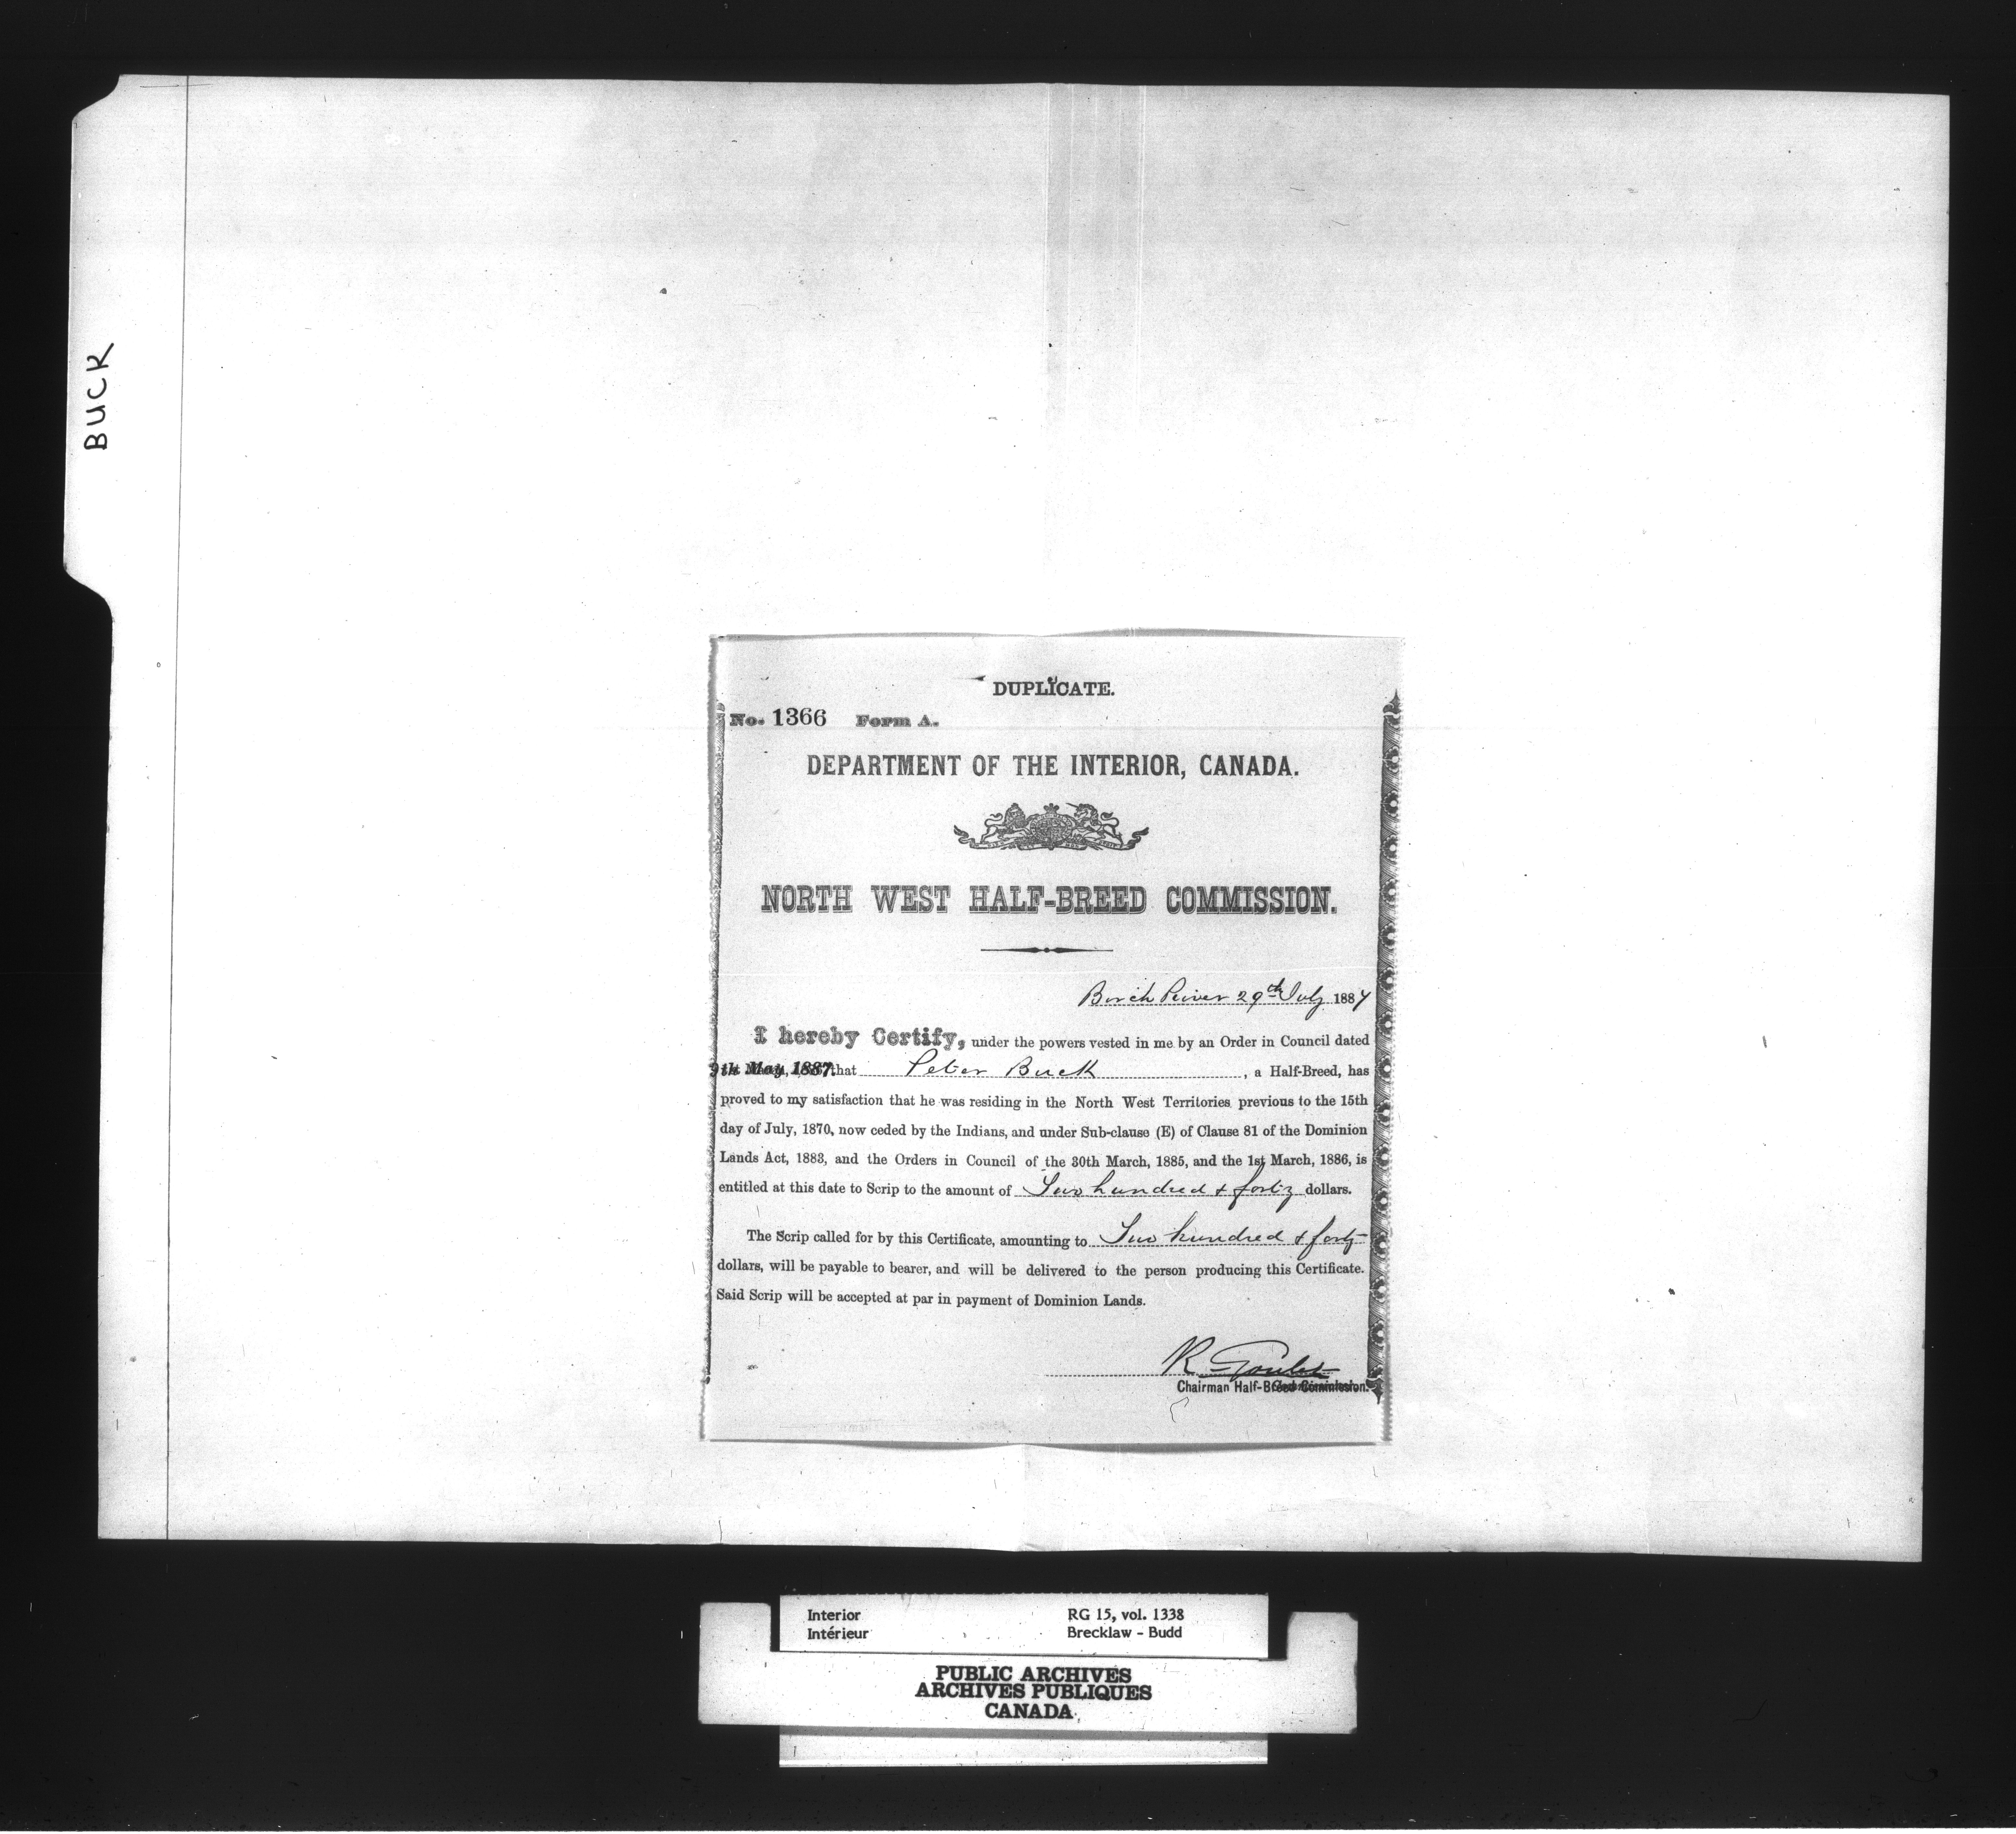 BUCK
DUPLICATE.
No. 1366 Form A.
DEPARTMENT OF THE INTERIOR, CANADA.
NORTH WEST HALF-BREED COMMISSION.
Birch River 29th July 1887
I hereby Certify, under the powers vested in me by an Order in Council dated
9th May 1887. that Peter Buck, a Half-Breed, has
proved to my satisfaction that he was residing in the North West Territories previous to the 15th
day of July, 1870, now ceded by the Indians, and under Sub-clause (E) of Clause 81 of the Dominion
Lands Act, 1883, and the Orders in Council of the 30th March, 1885, and the 1st March, 1886, is
entitled at this date to Scrip to the amount of Two hundred & forty dollars.
The Scrip called for by this Certificate, amounting to Two hundred & forty
dollars, will be payable to bearer, and will be delivered to the person producing this Certificate.
Said Scrip will be accepted at par in payment of Dominion Lands.
R Goulet
Chairman Half-Breed Commission.
Interior RG 15, vol. 1338
Intérieur Brecklaw - Budd
PUBLIC ARCHIVES
ARCHIVES PUBLIQUES
CANADA